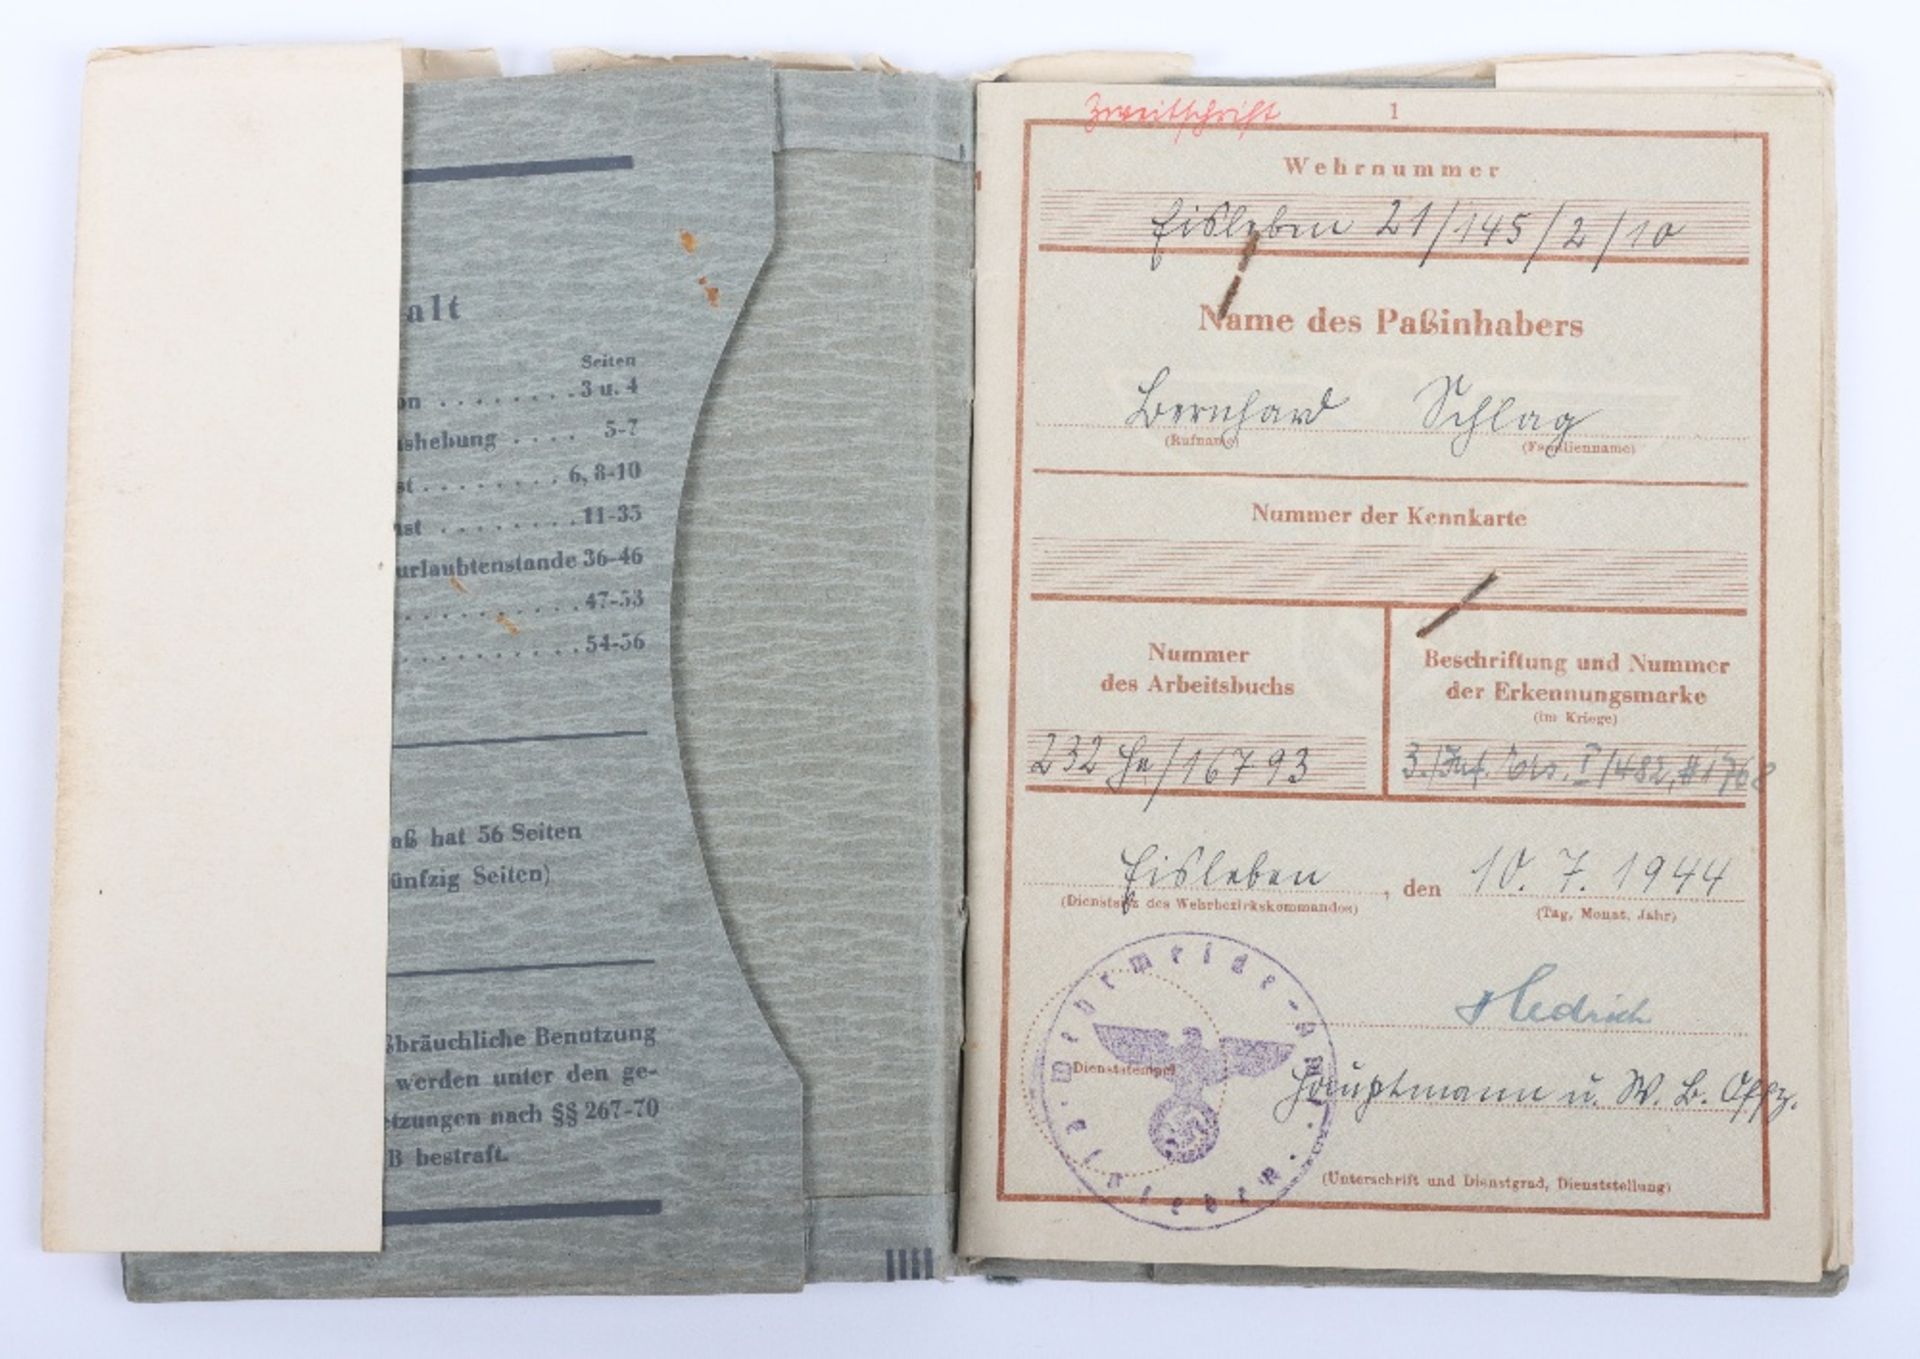 alt
Seiten
on ........ 3 u. 4
shebung .... 5-7
st ........ 6, 8-10
nst ........ 11-35
urlaubtenstande 36-46
........ 47-53
........ 54-56
aß hat 56 Seiten
ünfzig Seiten)
ßbräuchliche Benutzung
werden unter den ge-
etzungen nach §§ 267-70
B bestraft.
Zweitschrift
1
Wehrnummer
Eisleben 21/145/2/10
Name des Paßinhabers
Bernhard Schlag
(Rufname) (Familienname)
Nummer der Kennkarte
Nummer
des Arbeitsbuchs
232 /16793
Beschriftung und Nummer
der Erkennungsmarke
(im Kriege)
3./Inf. Ers. I/482, 1768
Eisleben, den 10. 7. 1944
(Dienstsitz des Wehrbezirkskommandos) (Tag, Monat, Jahr)
Hedrich
(Dienststempel)
Hauptmann u. W. B. Offz.
(Unterschrift und Dienstgrad, Dienststellung)